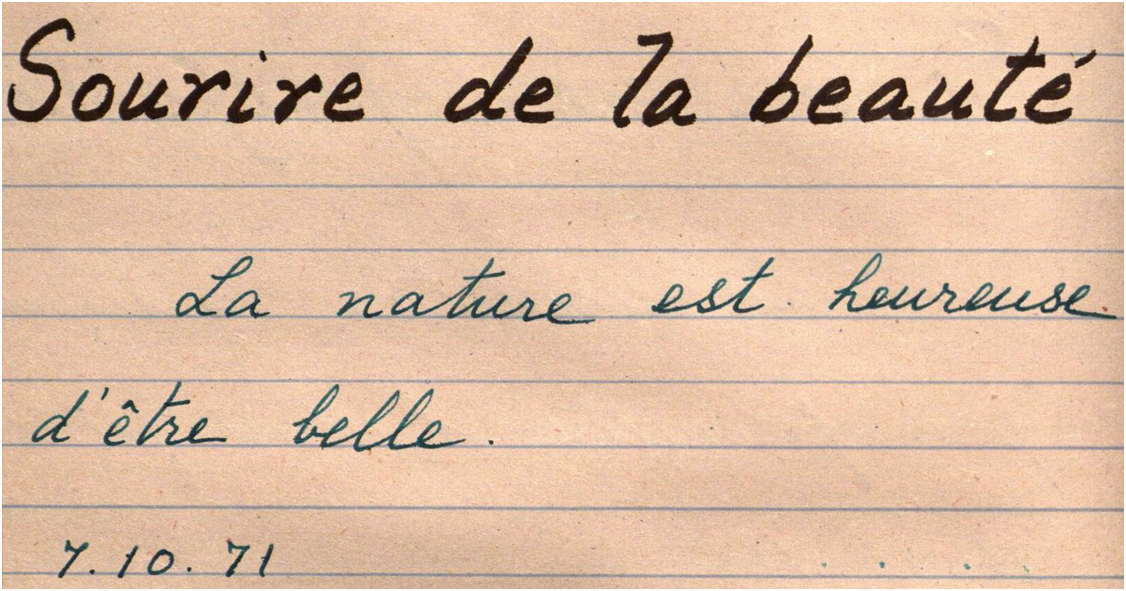 Sourire de la beauté
La nature est heureuse
d'être belle.
7.10.71